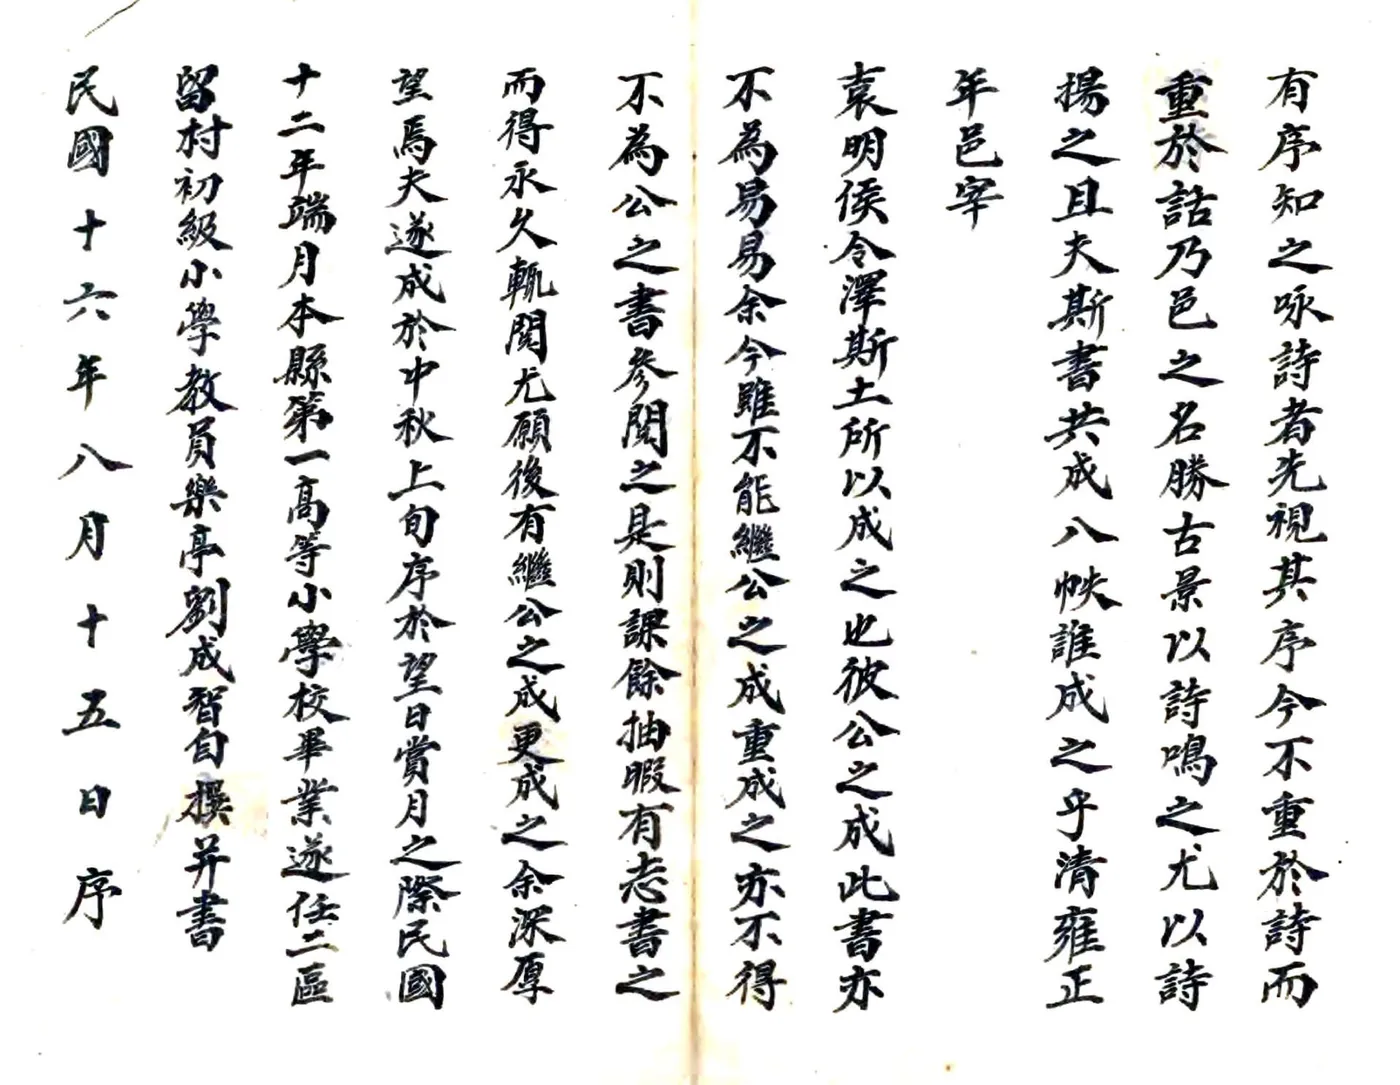 有序知之咏詩者先視其序今不重於詩而
重於話乃邑之名勝古景以詩鳴之尤以詩
揚之且夫斯書共成八帙誰成之乎清雍正
年邑宰
袁明侯令澤斯土所以成之也彼公之成此書亦
不為易易余今雖不能繼公之成重成之亦不得
不為公之書參閱之是則課餘抽暇有志書之
而得永久輒閱尤願後有繼公之成更成之余深厚
望焉夫遂成於中秋上旬序於望日賞月之際民國
十二年端月本縣第一高等小學校畢業遂任二區
留村初級小學教員樂亭劉成智自撰并書
民國十六年八月十五日序